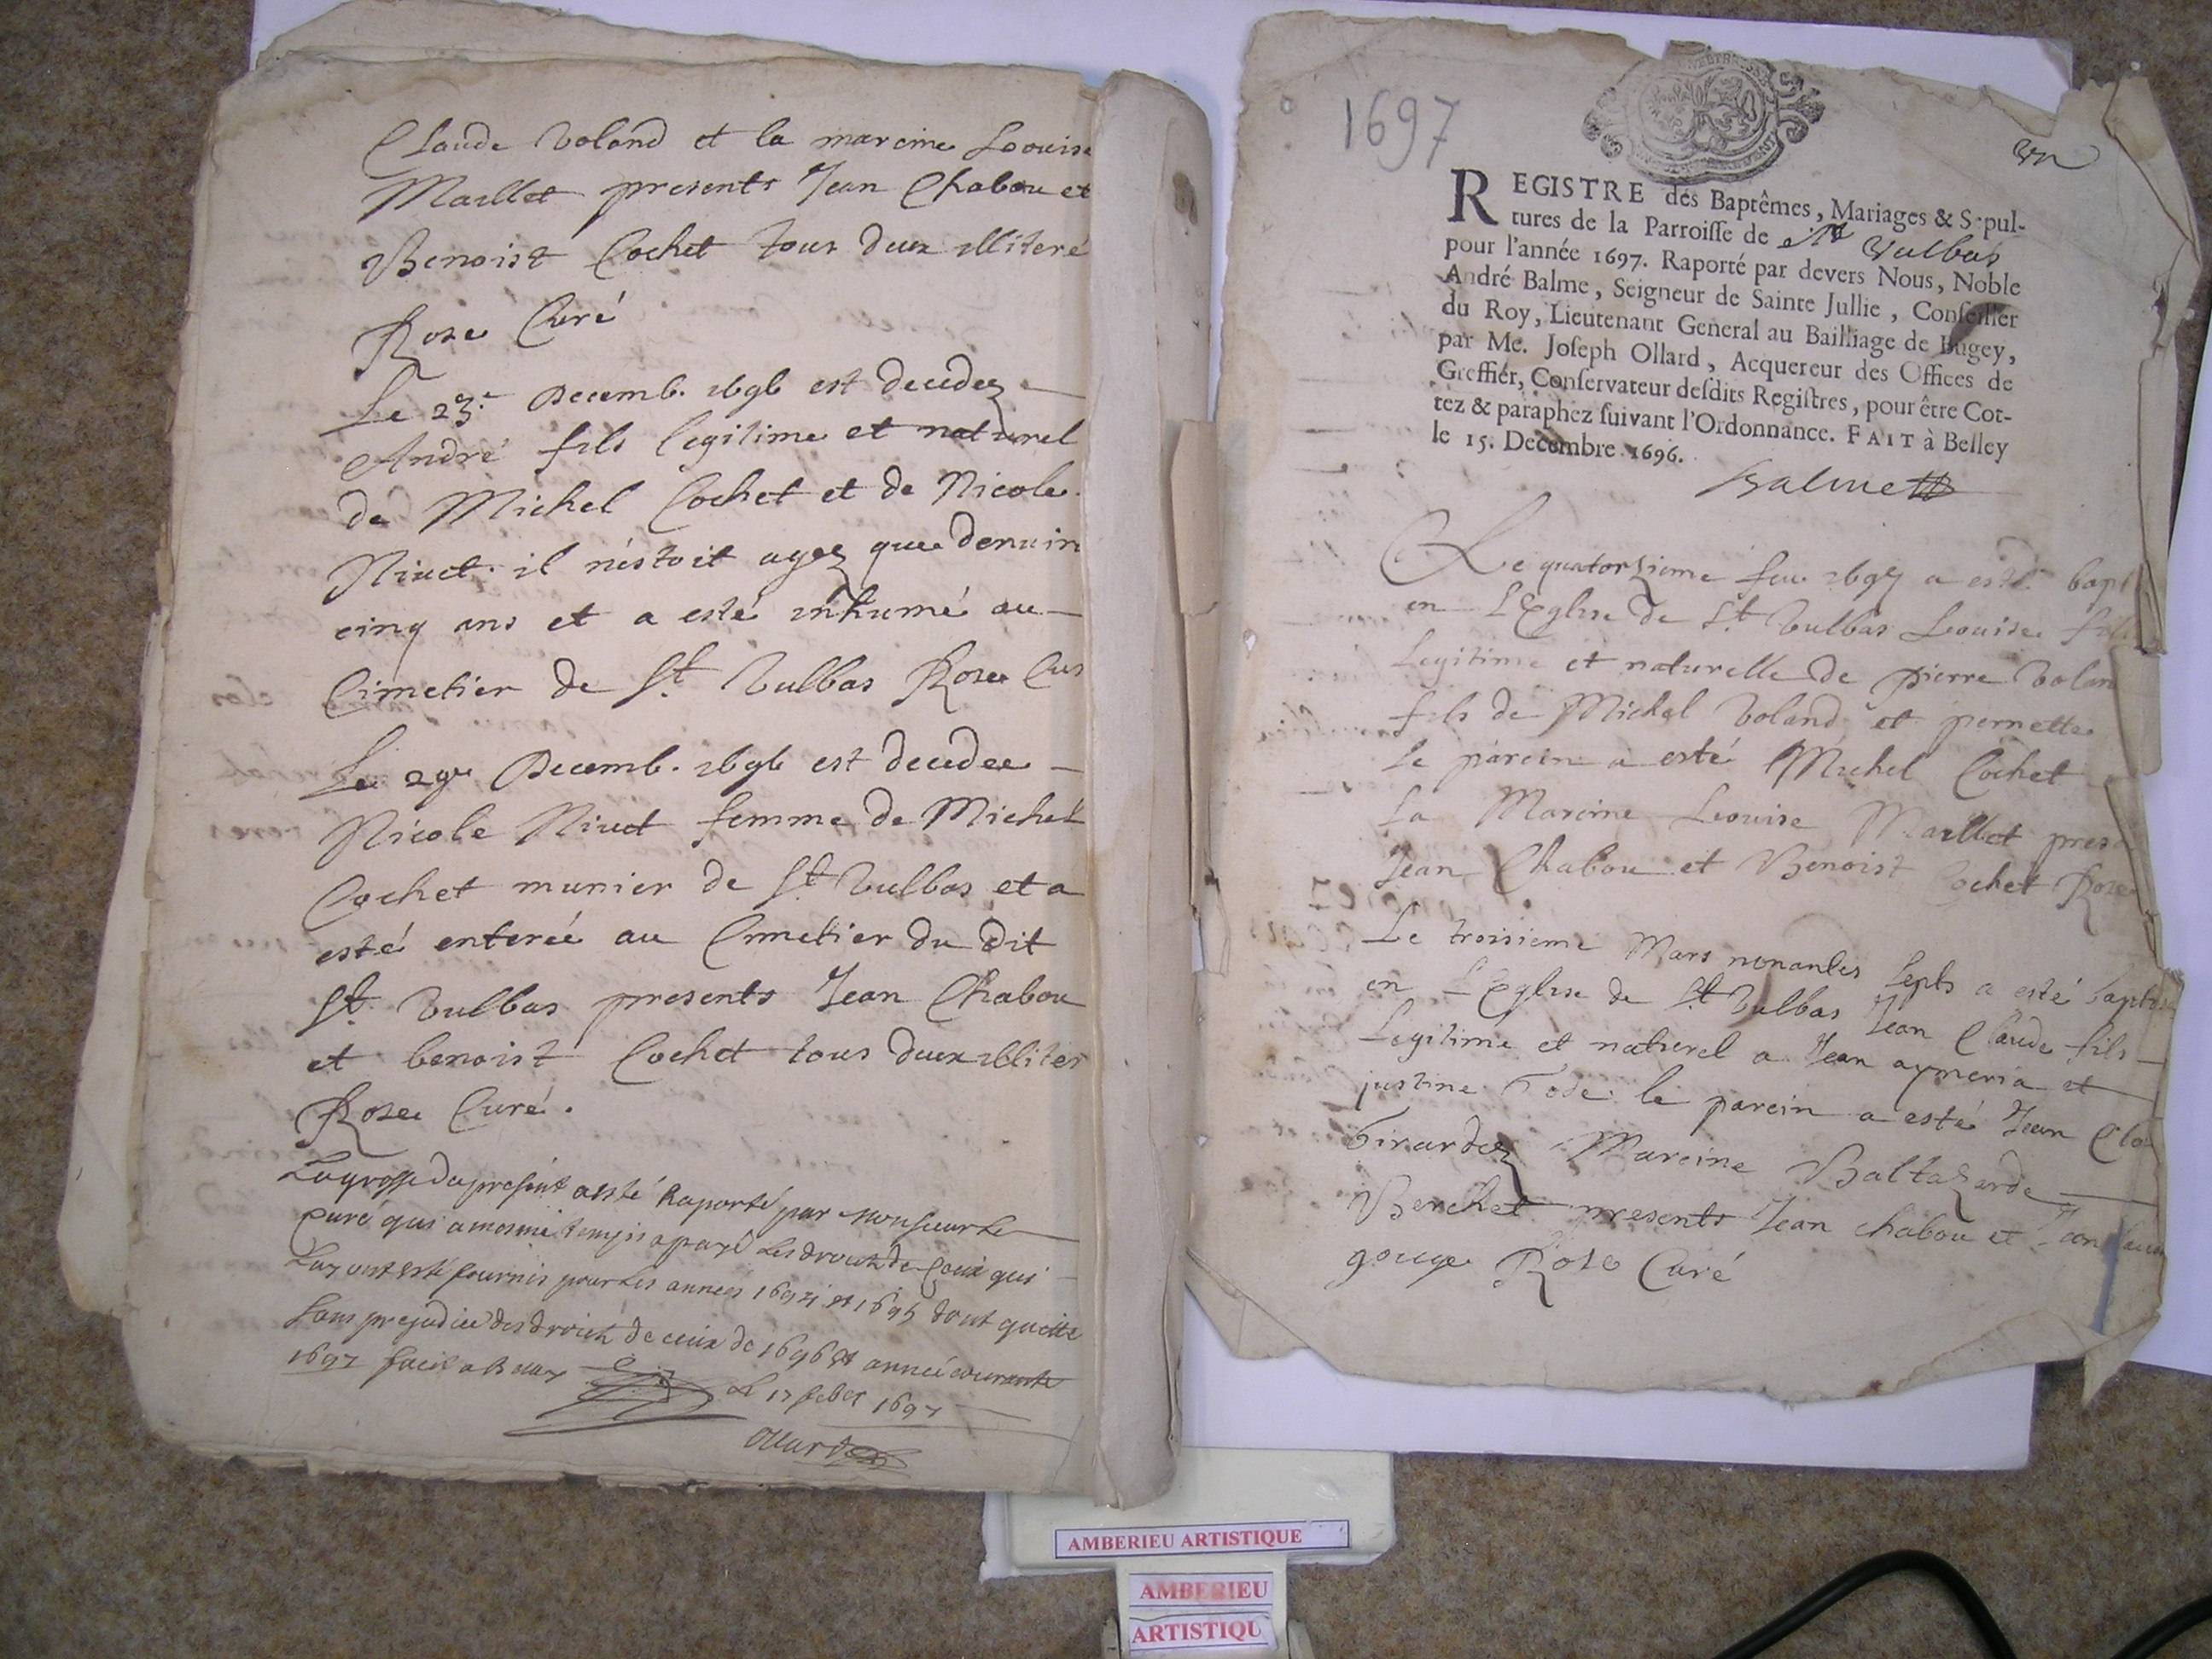 Claude Voland et la mareine Loouise
Maillet presents Jean Chabou et
Benoist Cochet tous deux illiteré
Roze Curé
Le 23.e Decemb. 1696 est decedez
André fils legitime et naturel
de Michel Cochet et de Nicole
Niuet. il n'estoit agez que denuiro
cinq ans et a esté inhumé au
Cimetier de St Vulbas Roze Cur
Le 29e Decemb. 1696 est decedee
Nicole Niuet femme de Michel
Cochet munier de St Vulbas et a
esté enterée au Cimetier du dit
St. Vulbas presents Jean Chabou
et benoist Cochet tous deux illiter
Roze Curé.
La grosse du present a esté Raporté par monsieur le
Curé qui a mesme temps a payé les droits de Ceux qui
Luy ont esté fournis pour les années 1694 et 1695 dont quitte
sans prejudice des droits de ceux de 1696 et année courante
1697
Le 17 feber 1697
Ollard
1697
un
REGISTRE des Baptêmes, Mariages & Sepul-
tures de la Parroisse de St Vulbas
pour l'année 1697. Raporté par devers Nous, Noble
André Balme, Seigneur de Sainte Jullie, Conseiller
du Roy, Lieutenant General au Bailliage de Bugey,
par Me. Joseph Ollard, Acquereur des Offices de
Greffier, Conservateur desdits Registres, pour être Cot-
tez & paraphez suivant l'Ordonnance. FAIT à Belley
le 15. Decembre 1696.
Balme
Le quatorzieme feu. 1697 a esté bapt
en L'Eglise de St Vulbas Leouise fille
Legitime et naturelle de pierre Voland
fils de Michel Voland et pernette
Le parein a esté Michel Cochet
La Mareine Leouise Maillet pres
Jean Chabou et Benoist Cochet Roze
Le troisieme Mars nonantes septs a esté baptisé
en L'Eglise de St Vulbas Jean Claude fils
Legitime et naturel a Jean aymeria et
justine Tode le parein a esté Jean Cla
Girardez Mareine Baltazarde
Berchet presents Jean chabou et Jean
gouge Roze Curé
AMBERIEU ARTISTIQUE
AMBERIEU
ARTISTIQU